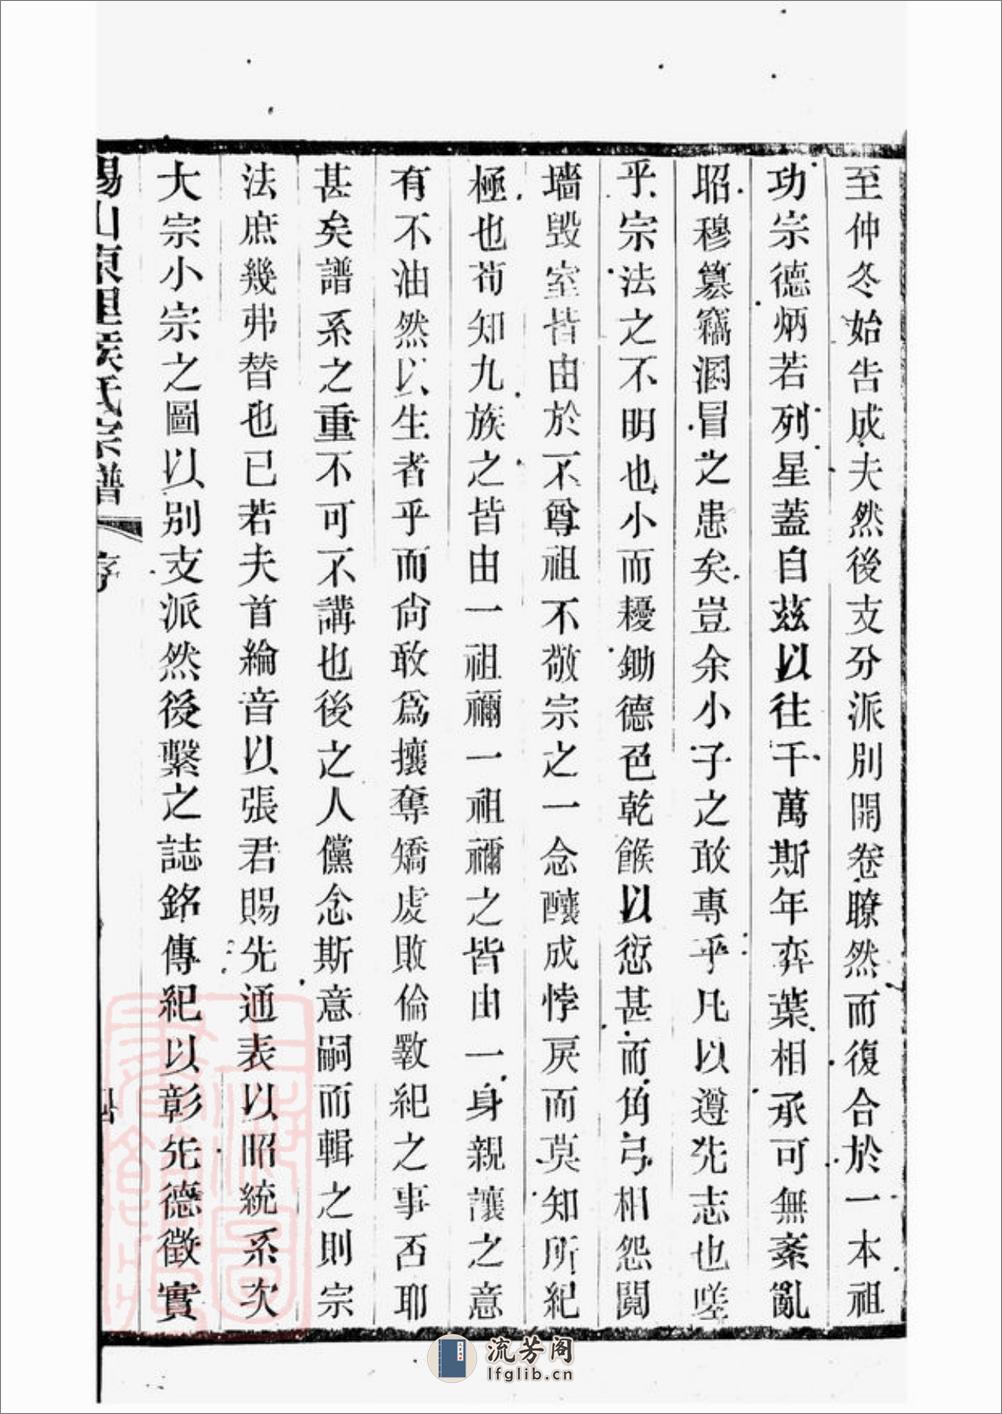 至仲冬始告成夫然後支分派別開卷瞭然而復合於一本祖
功宗德炳若列星蓋自茲以往千萬斯年弈葉相承可無紊亂
昭穆簒竊溷冒之患矣豈余小子之敢專乎凡以遵先志也嗟
乎宗法之不明也小而耰鋤德色乾餱以愆甚而角弓相怨鬩
墻毀室皆由於不尊祖不敬宗之一念釀成悖戾而莫知所紀
極也苟知九族之皆由一祖禰一祖禰之皆由一身親讓之意
有不油然以生者乎而尙敢爲攘奪矯虔敗倫斁紀之事否耶
甚矣譜系之重不可不講也後之人儻念斯意嗣而輯之則宗
法庶幾弗替也已若夫首綸音以張君賜先通表以昭統系次
大宗小宗之圖以別支派然後繫之誌銘傳紀以彰先德徵實
錫山東里侯氏宗譜
序
四
流芳阁
lfglib.cn